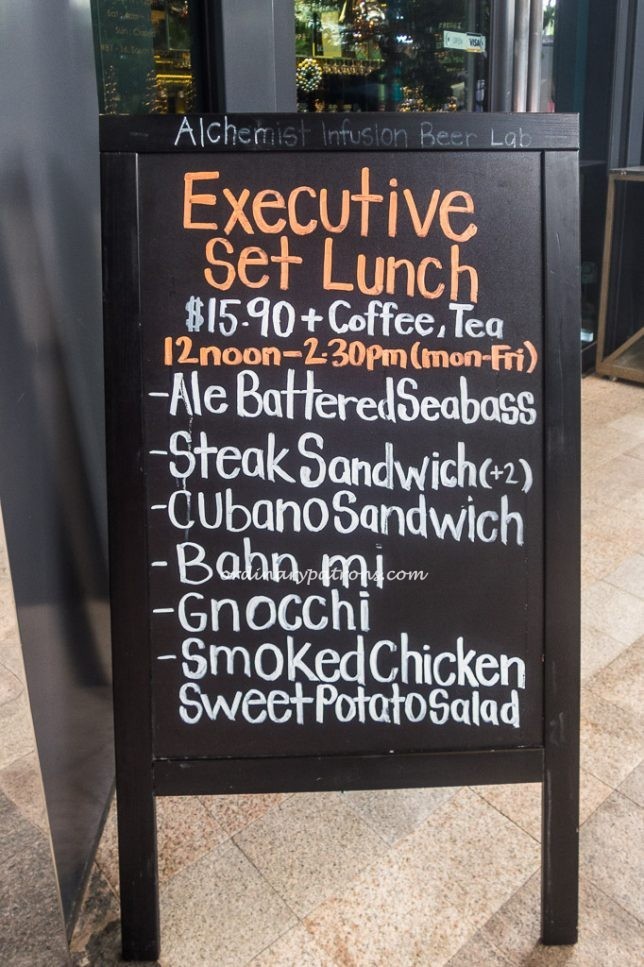 Alchemist Infusion Beer Lab
Executive
Set Lunch
$15.90 + Coffee, Tea
12noon-2.30pm (mon-Fri)
-Ale Battered Seabass
-Steak Sandwich (+2)
-Cubano Sandwich
-Bahn mi
ordinarypatrons.com
-Gnocchi
-Smoked Chicken
Sweet Potato Salad
OPEN
VISA